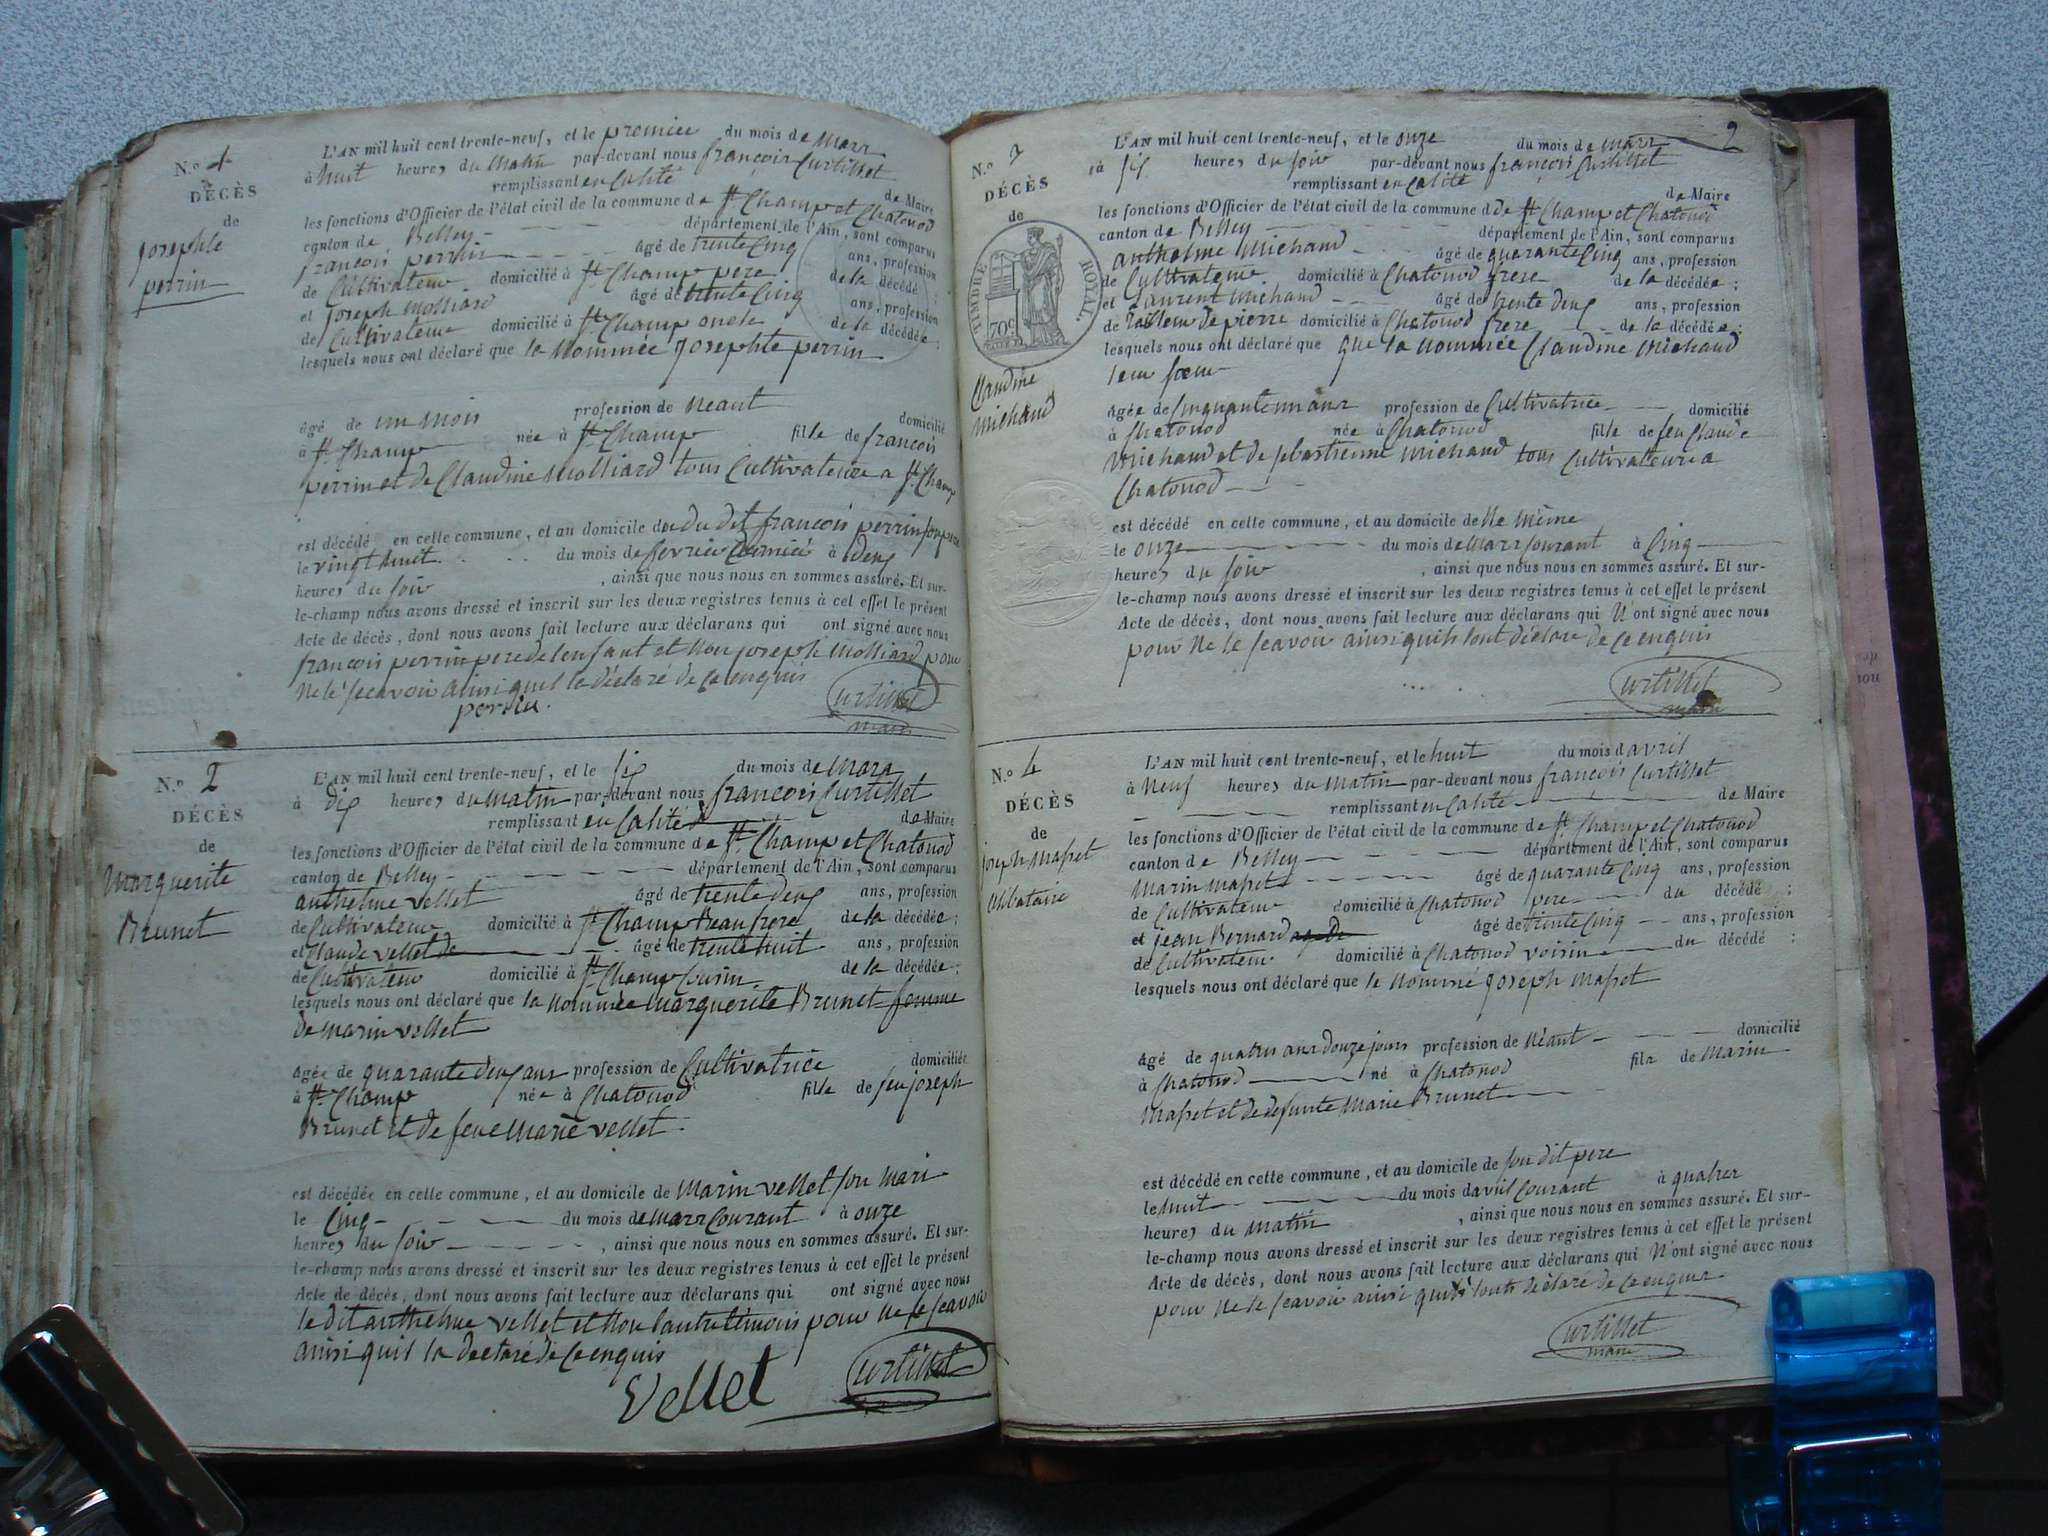 N.° 1
DÉCÈS
de
josephte
perrin
L'AN mil huit cent trente-neuf, et le premier du mois de Mars
à huit heures du Matin par-devant nous françois Curtillet
remplissant en Calité de Maire
les fonctions d'Officier de l'état civil de la commune de St Champ et Chatonod
canton de Belley département de l'Ain, sont comparus
françois perrin âgé de trente Cinq ans, profession
de Cultivateur domicilié à St Champ pere de la décédée ;
et joseph Molliard âgé de trente Cinq ans, profession
de Cultivateur domicilié à St Champ oncle de la décédée ;
lesquels nous ont déclaré que la Nommée josephte perrin
âgé de un Mois profession de Neant domicilié
à St Champ née à St Champ fille de francois
perrin et de Claudine Molliard tous Cultivateurs a St Champ
est décédé en cette commune, et au domicile de du dit françois perrin son pere
le vingt huit du mois de fevrier dernier à deux
heures du soir , ainsi que nous nous en sommes assuré. Et sur-
le-champ nous avons dressé et inscrit sur les deux registres tenus à cet effet le présent
Acte de décès, dont nous avons fait lecture aux déclarans qui ont signé avec nous
françois perrin pere de lenfant et Non joseph Molliard pour
Ne le scavoir ainsi quil la déclaré de ce enquis
perrin. Curtillet
maire
N.° 2
DÉCÈS
de
Marguerite
Brunet
L'AN mil huit cent trente-neuf, et le six du mois de Mars
à dix heures du Matin par-devant nous françois Curtillet
remplissant en Calité de Maire
les fonctions d'Officier de l'état civil de la commune de St Champ et Chatonod
canton de Belley département de l'Ain, sont comparus
anthelme vellet âgé de trente deux ans, profession
de Cultivateur domicilié à St Champ Beau frere de la décédée ;
et Claude vellet âgé de trente huit ans, profession
de Cultivateur domicilié à St Champ Cousin de la décédée ;
lesquels nous ont déclaré que la Nommée Marguerite Brunet femme
de Marin vellet
âgée de quarante deux ans profession de Cultivatrice domiciliée
à St Champ née à Chatonod fille de feu joseph
Brunet et de feue Marie vellet
est décédée en cette commune, et au domicile de Marin vellet son Mari
le Cinq du mois de Mars Courant à onze
heures du soir , ainsi que nous nous en sommes assuré. Et sur-
le-champ nous avons dressé et inscrit sur les deux registres tenus à cet effet le présent
Acte de décès, dont nous avons fait lecture aux déclarans qui ont signé avec nous
le dit anthelme vellet et Non lautre témoin pour Ne le scavoir
ainsi quil la declaré de ce enquis
Vellet Curtillet
2
N.° 3
DÉCÈS
de
TIMBRE ROYAL.
70 c
Claudine
Michaud
L'AN mil huit cent trente-neuf, et le onze du mois de Mars
à six heures du soir par-devant nous françois Curtillet
remplissant en Calité de Maire
les fonctions d'Officier de l'état civil de la commune d de St Champ et Chatonod
canton de Belley département de l'Ain, sont comparus
anthelme Michaud âgé de quarante Cinq ans, profession
de Cultivateur domicilié à Chatonod frere de la décédée ;
et Laurent Michaud âgé de trente deux ans, profession
de tailleur de pierre domicilié à Chatonod frere de la décédée ;
lesquels nous ont déclaré que que la Nommée Claudine Michaud
leur soeur
âgée de Cinquante un ans profession de Cultivatrice domicilié
à Chatonod née à Chatonod fille de feu Claude
Michaud et de sebastienne Michaud tous Cultivateurs a
Chatonod
est décédé en cette commune, et au domicile de Elle Même
le onze du mois de Mars Courant à Cinq
heures du soir , ainsi que nous nous en sommes assuré. Et sur-
le-champ nous avons dressé et inscrit sur les deux registres tenus à cet effet le présent
Acte de décès, dont nous avons fait lecture aux déclarans qui N ont signé avec nous
pour Ne le scavoir ainsi quils lont déclare de ce enquis
Curtillet
maire
N.° 4
DÉCÈS
de
joseph Masset
célibataire
L'AN mil huit cent trente-neuf, et le huit du mois d avril
à Neuf heures du Matin par-devant nous françois Curtillet
remplissant en Calité de Maire
les fonctions d'Officier de l'état civil de la commune de St Champ et Chatonod
canton de Belley département de l'Ain, sont comparus
Marin Masset âgé de quarante Cinq ans, profession
de Cultivateur domicilié à Chatonod pere du décédé ;
et jean Bernard âgé de trente Cinq ans, profession
de Cultivateur domicilié à Chatonod voisin du décédé ;
lesquels nous ont déclaré que le Nommé joseph Masset
âgé de quatres ans douze jours profession de Néant domicilié
à Chatonod né à Chatonod fils de Marin
Masset et de defunte Marie Brunet
est décédé en cette commune, et au domicile de son dit pere
le huit du mois d avril Courant à quatres
heures du Matin , ainsi que nous nous en sommes assuré. Et sur-
le-champ nous avons dressé et inscrit sur les deux registres tenus à cet effet le présent
Acte de décès, dont nous avons fait lecture aux déclarans qui N'ont signé avec nous
pour Ne le scavoir ainsi quils lont déclaré de ce enquis
Curtillet
maire